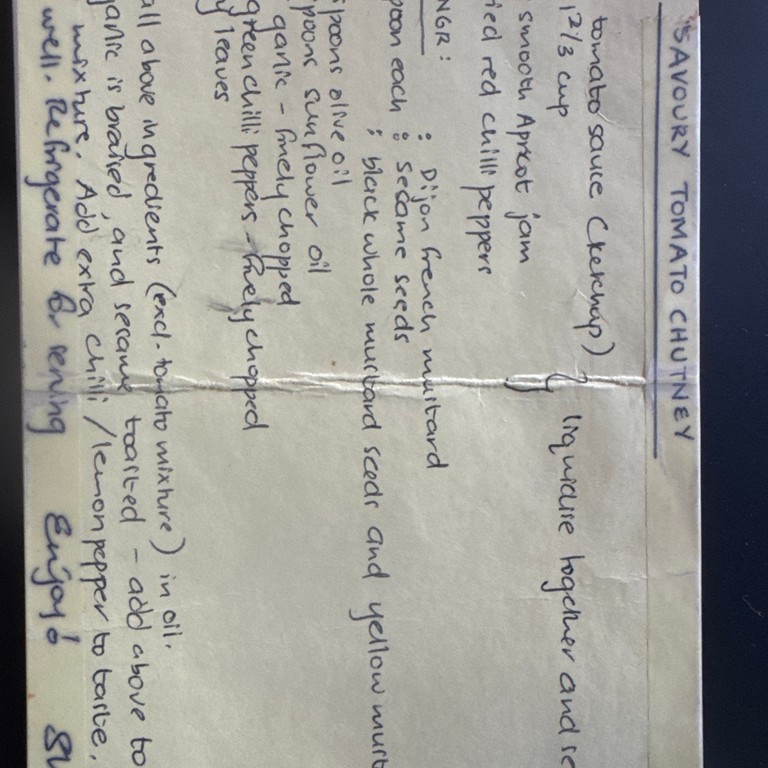 SAVOURY TOMATO CHUTNEY
tomato sauce (ketchup)
1 2/3 cup } liquidise together and se
smooth Apricot jam
ied red chilli peppers
NGR :
: Dijon french mustard
poon each : sesame seeds
: black whole mustard seeds and yellow must
spoons olive oil
spoons sunflower oil
garlic - finely chopped
green chilli peppers - finely chopped
y leaves
all above ingredients (excl. tomato mixture) in oil.
garlic is braised, and sesame toasted - add above to
mixture. Add extra chilli / lemon pepper to taste.
well. Refrigerate for serving Enjoy!